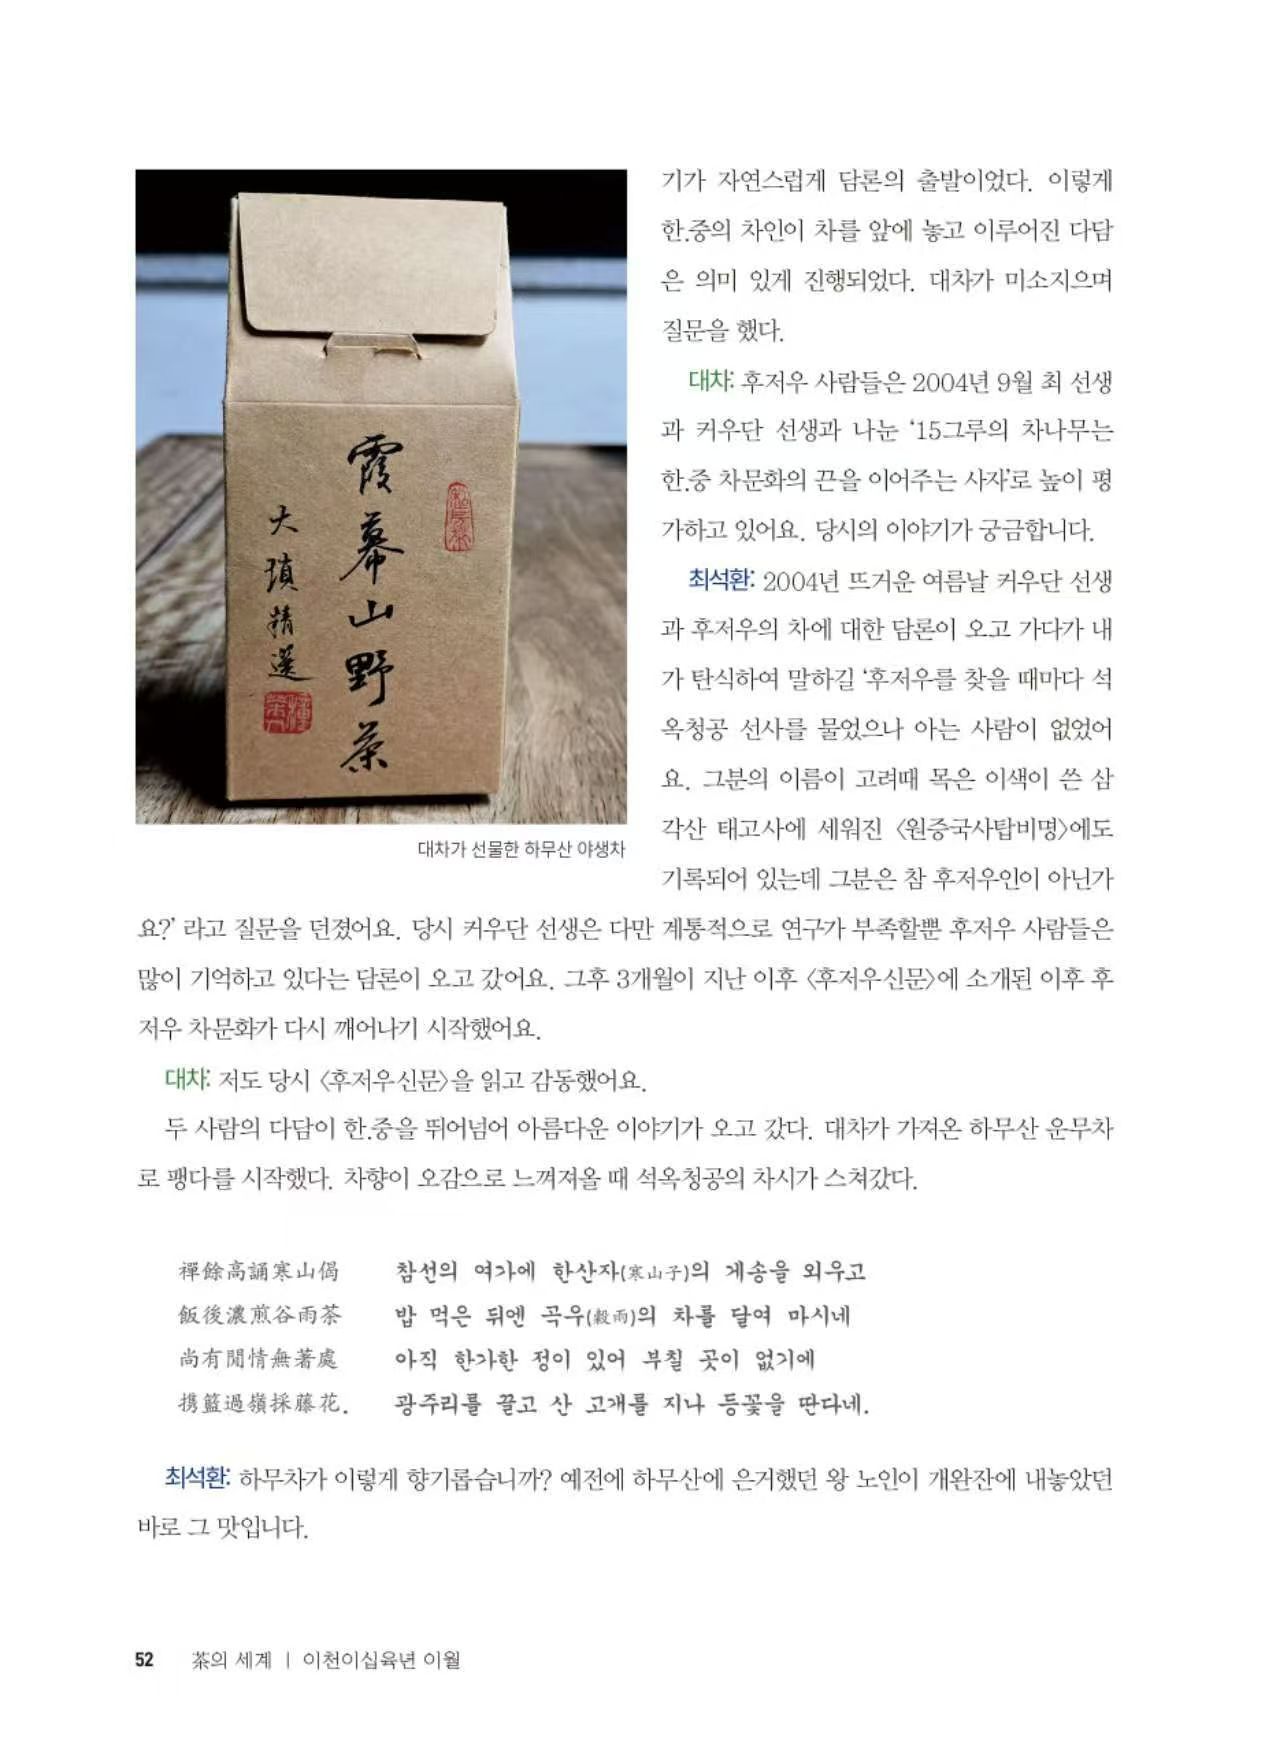 霞幕山野茶
大瑱精選
대차가 선물한 하무산 야생차
기가 자연스럽게 담론의 출발이었다. 이렇게
한.중의 차인이 차를 앞에 놓고 이루어진 다담
은 의미 있게 진행되었다. 대차가 미소지으며
질문을 했다.
대차: 후저우 사람들은 2004년 9월 최 선생
과 커우단 선생과 나눈 ‘15그루의 차나무는
한.중 차문화의 끈을 이어주는 사자’로 높이 평
가하고 있어요. 당시의 이야기가 궁금합니다.
최석환: 2004년 뜨거운 여름날 커우단 선생
과 후저우의 차에 대한 담론이 오고 가다가 내
가 탄식하여 말하길 ‘후저우를 찾을 때마다 석
옥청공 선사를 물었으나 아는 사람이 없었어
요. 그분의 이름이 고려때 목은 이색이 쓴 삼
각산 태고사에 세워진 〈원증국사탑비명〉에도
기록되어 있는데 그분은 참 후저우인이 아닌가
요?’ 라고 질문을 던졌어요. 당시 커우단 선생은 다만 계통적으로 연구가 부족할뿐 후저우 사람들은
많이 기억하고 있다는 담론이 오고 갔어요. 그후 3개월이 지난 이후 〈후저우신문〉에 소개된 이후 후
저우 차문화가 다시 깨어나기 시작했어요.
대차: 저도 당시 〈후저우신문〉을 읽고 감동했어요.
두 사람의 다담이 한.중을 뛰어넘어 아름다운 이야기가 오고 갔다. 대차가 가져온 하무산 운무차
로 팽다를 시작했다. 차향이 오감으로 느껴져올 때 석옥청공의 차시가 스쳐갔다.
禪餘高誦寒山偈 참선의 여가에 한산자(寒山子)의 게송을 외우고
飯後濃煎谷雨茶 밥 먹은 뒤엔 곡우(穀雨)의 차를 달여 마시네
尚有閒情無著處 아직 한가한 정이 있어 부칠 곳이 없기에
携籃過嶺採藤花. 광주리를 끌고 산 고개를 지나 등꽃을 딴다네.
최석환: 하무차가 이렇게 향기롭습니까? 예전에 하무산에 은거했던 왕 노인이 개완잔에 내놓았던
바로 그 맛입니다.
52 茶의 세계 | 이천이십육년 이월